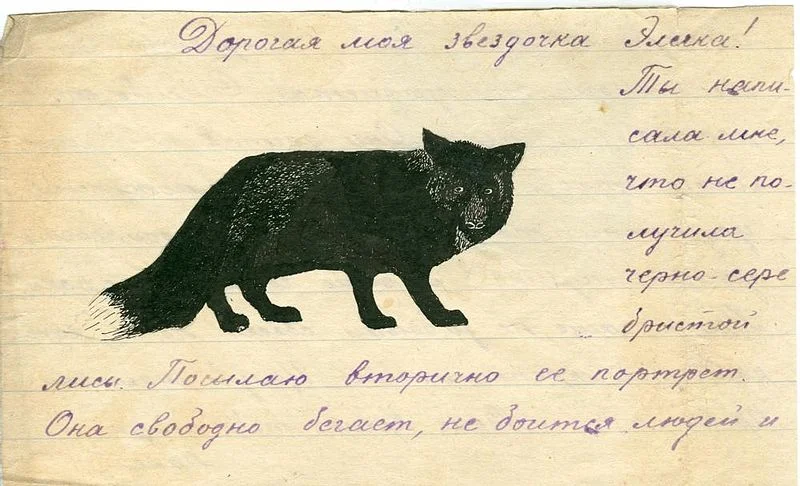 Дорогая моя звездочка Эличка!
Ты напи-
сала мне,
что не по-
лучила
черно-сере
бристой
лисы. Посылаю вторично ее портрет.
Она свободно бегает, не боится людей и